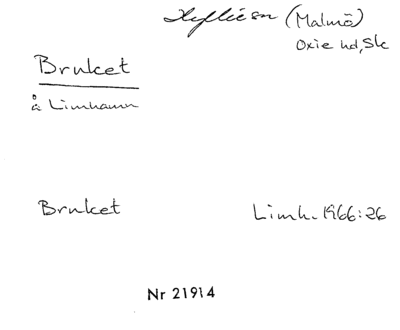 Hyllie sn (Malmö)
Oxie hd, Sk
Bruket
å Limhamn
Bruket Limh. 1966:26
Nr 21914